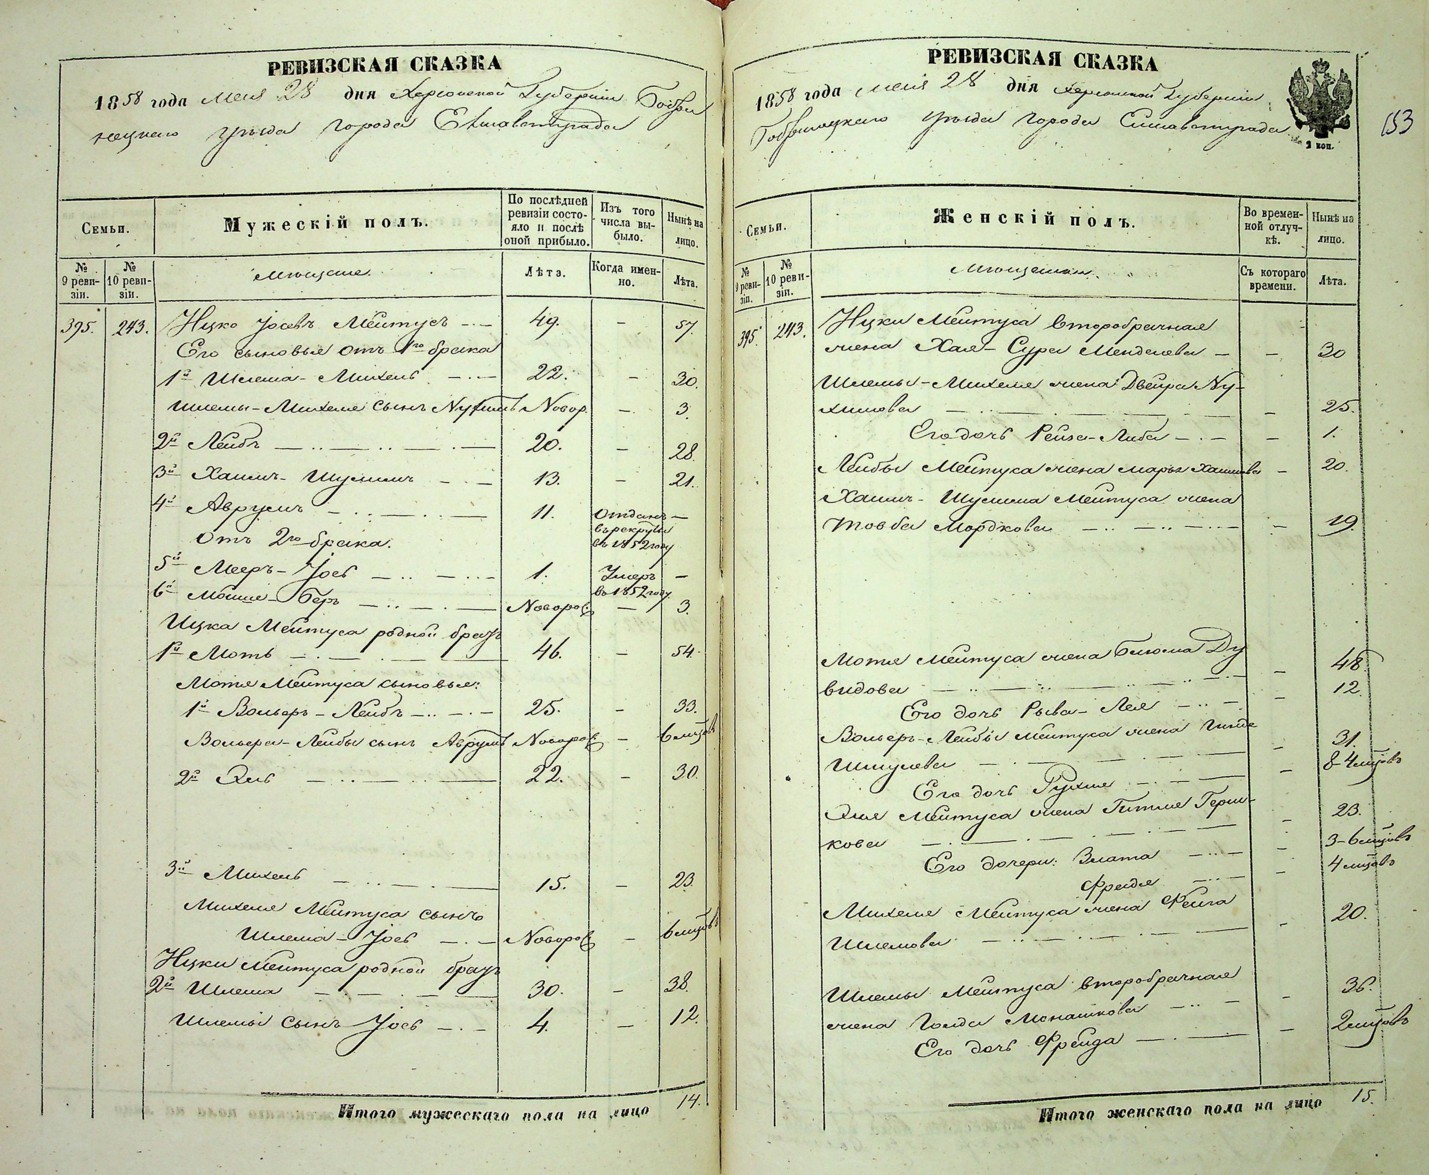 РЕВИЗСКАЯ СКАЗКА
1858 года мая 28 дня Херсонской Губерніи Бобри
нецкаго уѣзда города Елисаветграда
Семьи.
Мужескій полъ.
По послѣдней ревизіи состояло и послѣ оной прибыло.
Изъ того числа выбыло.
Нынѣ на лицо.
№ 9 ревизіи.
№ 10 ревизіи.
Мѣщане
Лѣта.
Когда именно.
Лѣта.
395. 243. Ицко Іосевъ Мейтусъ 49. – 57.
Его сыновья отъ 1го брака
1й Шлема-Михель 22. – 30.
Шлемы-Михеля сынъ Нухимъ Новор. – 3.
2й Лейбъ 20. – 28.
3й Хаимъ-Шулимъ 13. – 21.
4й Аврумъ 11. Отданъ въ рекруты въ 1852 году –
отъ 2го брака.
5й Мееръ-Іосъ 1. Умеръ въ 1852 году –
6й Мошко-Беръ Новорож – 3.
Ицка Мейтуса родной братъ
1й Моть 46. – 54.
Мотя Мейтуса сыновья:
1й Вольеръ-Лейбъ 25. – 33.
Вольера-Лейбы сынъ Аврумъ Новорож – 6 мцовъ
2й Эль 22. – 30.
3й Михель 15. – 23.
Михеля Мейтуса сынъ
Шлема-Іосъ Новорож – 6 мцовъ
Ицки Мейтуса родной братъ
2й Шлема 30. – 38.
Шлемы сынъ Іось 4. – 12.
Итого мужескаго пола на лицо 14.
РЕВИЗСКАЯ СКАЗКА
1858 года мая 28 дня Херсонской Губерніи
Бобринецкаго уѣзда города Елисаветграда
2 коп.
153
Семьи.
Женскій полъ.
Во временной отлучкѣ.
Нынѣ на лицо.
№ 9 ревизіи.
№ 10 ревизіи.
Мѣщанки
Съ котораго времени.
Лѣта.
395. 243. Ицки Мейтуса второбрачная
жена Хая-Сура Менделева – 30
Шлемы-Михеля жена Двейра Ну-
химова – 25.
Его дочь Рейза-Либа – 1.
Лейбы Мейтуса жена Марья Хаимова – 20.
Хаимъ-Шулима Мейтуса жена
Товба Мордкова – 19.
Мотя Мейтуса жена Блюма Ду
видова – 48.
Его дочь Рыва-Лея – 12.
Вольеръ-Лейбы Мейтуса жена Гинде
Шмулева – 31.
Его дочь Рухля – 8-4 мцовъ
Эля Мейтуса жена Гитля Герш-
кова – 23.
Его дочери: Злата – 3-6 мцовъ
Фрейда – 4 мцовъ
Михеля Мейтуса жена Фейга
Шлемова – 20.
Шлемы Мейтуса второбрачная
жена Голда Монашкова – 36.
Его дочь Фрейда – 2 мцовъ
Итого женскаго пола на лицо 15.